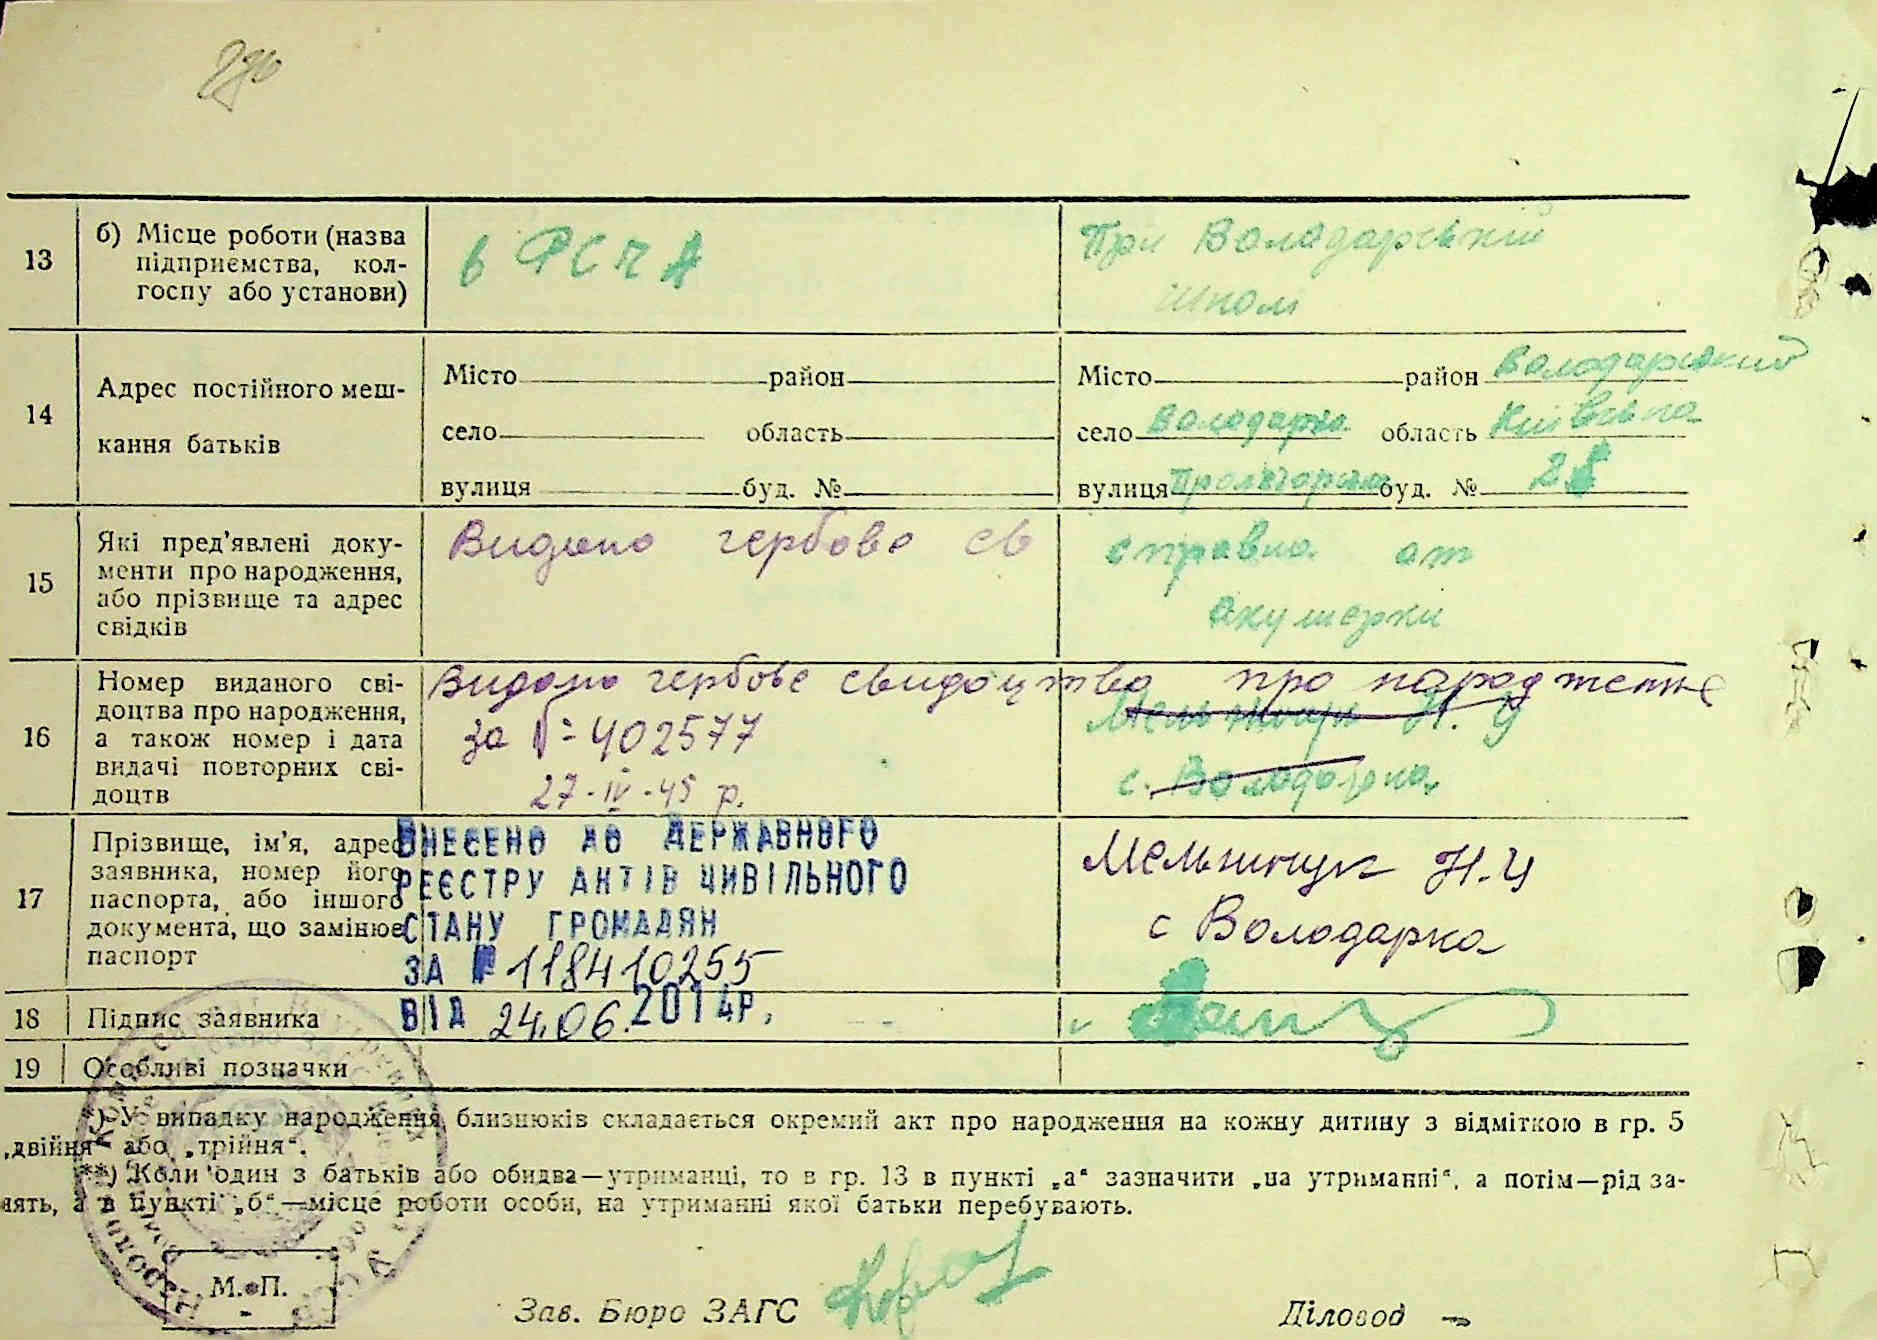 13 б) Місце роботи (назва
підприємства, кол-
госпу або установи)
в РСЧА
При Володарській
школі
14 Адрес постійного меш-
кання батьків
Місто район
село область
вулиця буд. №
Місто район Володарський
село Володарка область Київська
вулиця буд. № 28
15 Які пред'явлені доку-
менти про народження,
або прізвище та адрес
свідків
Видано гербове св
справка от
акушерки
16 Номер виданого сві-
доцтва про народження,
а також номер і дата
видачі повторних сві-
доцтв
Видано гербове свидоцтво про народження
за № 402577
27-IV-45 р.
Мельничук Н. И
с. Володарка
17 Прізвище, ім'я, адрес
заявника, номер його
паспорта, або іншого
документа, що замінює
паспорт
ВНЕСЕНО ДО ДЕРЖАВНОГО
РЕЄСТРУ АКТІВ ЦИВІЛЬНОГО
СТАНУ ГРОМАДЯН
ЗА № 118410255
ВІД 24.06.2014Р.
Мельничук Н.И
с Володарка
18 Підпис заявника
19 Особливі позначки
*) У випадку народження близнюків складається окремий акт про народження на кожну дитину з відміткою в гр. 5
„двійня" або „трійня".
**) Коли один з батьків або обидва—утриманці, то в гр. 13 в пункті „а" зазначити „на утриманні", а потім—рід за-
нять, а в пункті „б"—місце роботи особи, на утриманні якої батьки перебувають.
М. П.
Зав. Бюро ЗАГС
Діловод